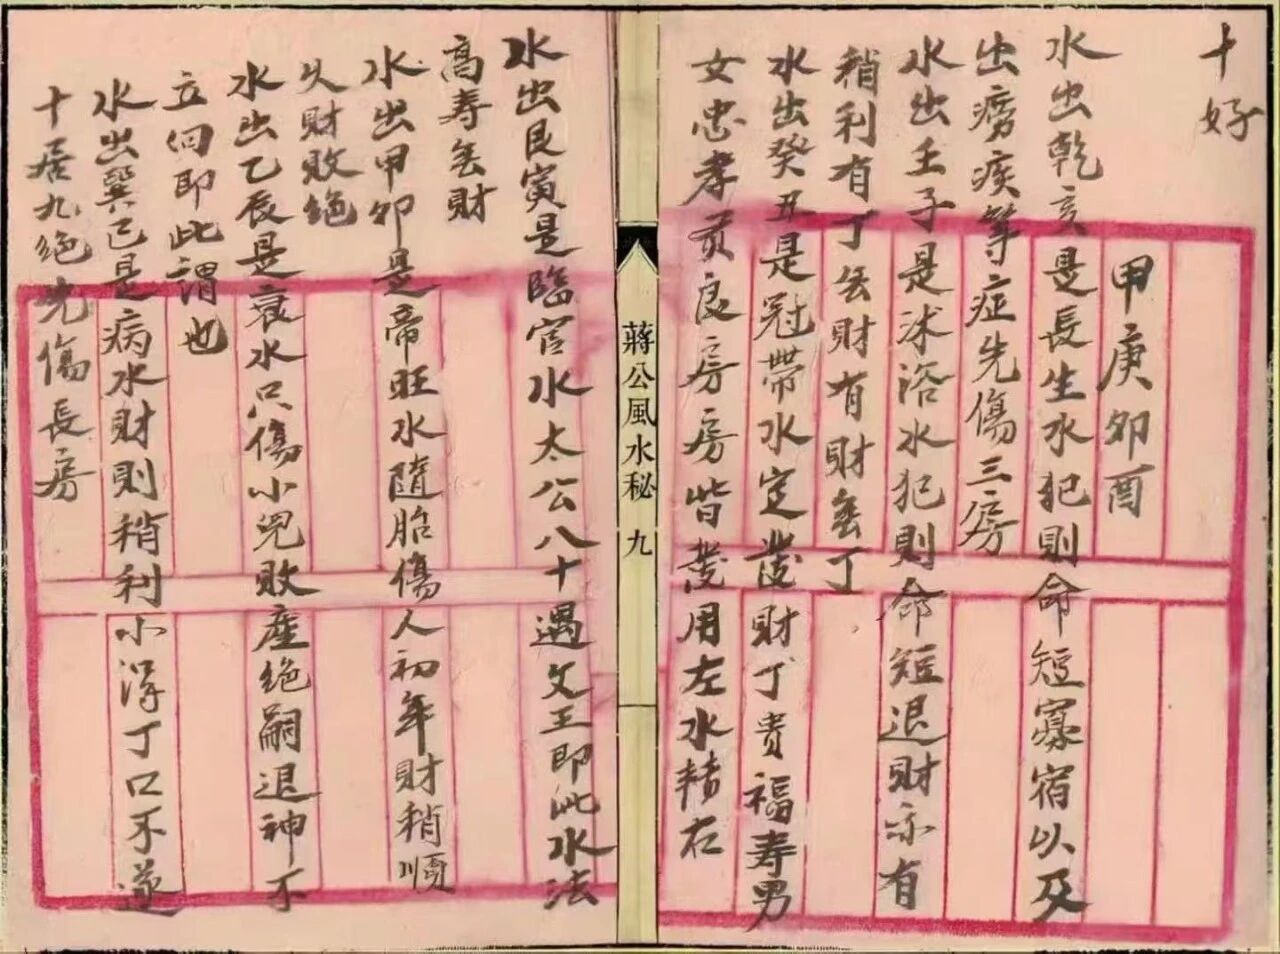 十好
甲庚卯酉
水出乾亥是長生水犯則命短寡宿以及
出癆疾等症先傷三房
水出壬子是沐浴水犯則命短退財亦有
稍利有丁無財有財無丁
水出癸丑是冠帶水定發財丁貴福壽男
女忠孝賢良房房皆發用左水轉右
蔣公風水秘 九
水出艮寅是臨官水太公八十遇文王即此水法
高壽無財
水出甲卯是帝旺水隨胎傷人初年財稍順
久財敗绝
水出乙辰是衰水只傷小兒敗產绝嗣退神不
立向即此謂也
水出巽巳是病水財則稍利小得丁口不遂
十居九绝先傷長房